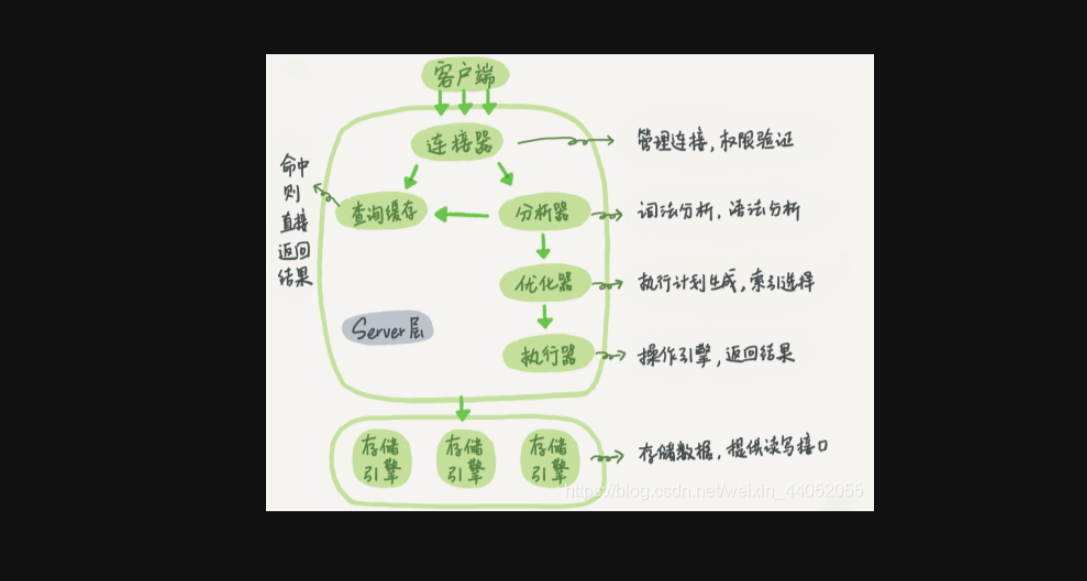 客户端
连接器
管理连接，权限验证
命中
则
直接
返回
结果
查询缓存
分析器
词法分析，语法分析
优化器
执行计划生成，索引选择
Server层
执行器
操作引擎，返回结果
存储
引擎
存储
引擎
存储
引擎
存储数据，提供读写接口
https://blog.csdn.net/weixin_44052055